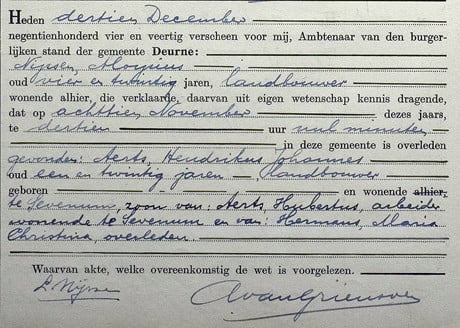 Heden dertien December
negentienhonderd vier en veertig verscheen voor mij, Ambtenaar van den burger-
lijken stand der gemeente Deurne:
Nijssen, Aloysius
oud vier en twintig jaren, landbouwer
wonende alhier, die verklaarde, daarvan uit eigen wetenschap kennis dragende,
dat op achttien November dezes jaars,
te dertien uur nul minuten
in deze gemeente is overleden
gevonden: Aerts, Hendrikus Johannes
oud een en twintig jaren, landbouwer
geboren en wonende alhier,
te Sevenum, zoon van: Aerts, Hubertus, arbeider
wonende te Sevenum en van: Hermans, Maria
Christina, overleden
Waarvan akte, welke overeenkomstig de wet is voorgelezen.